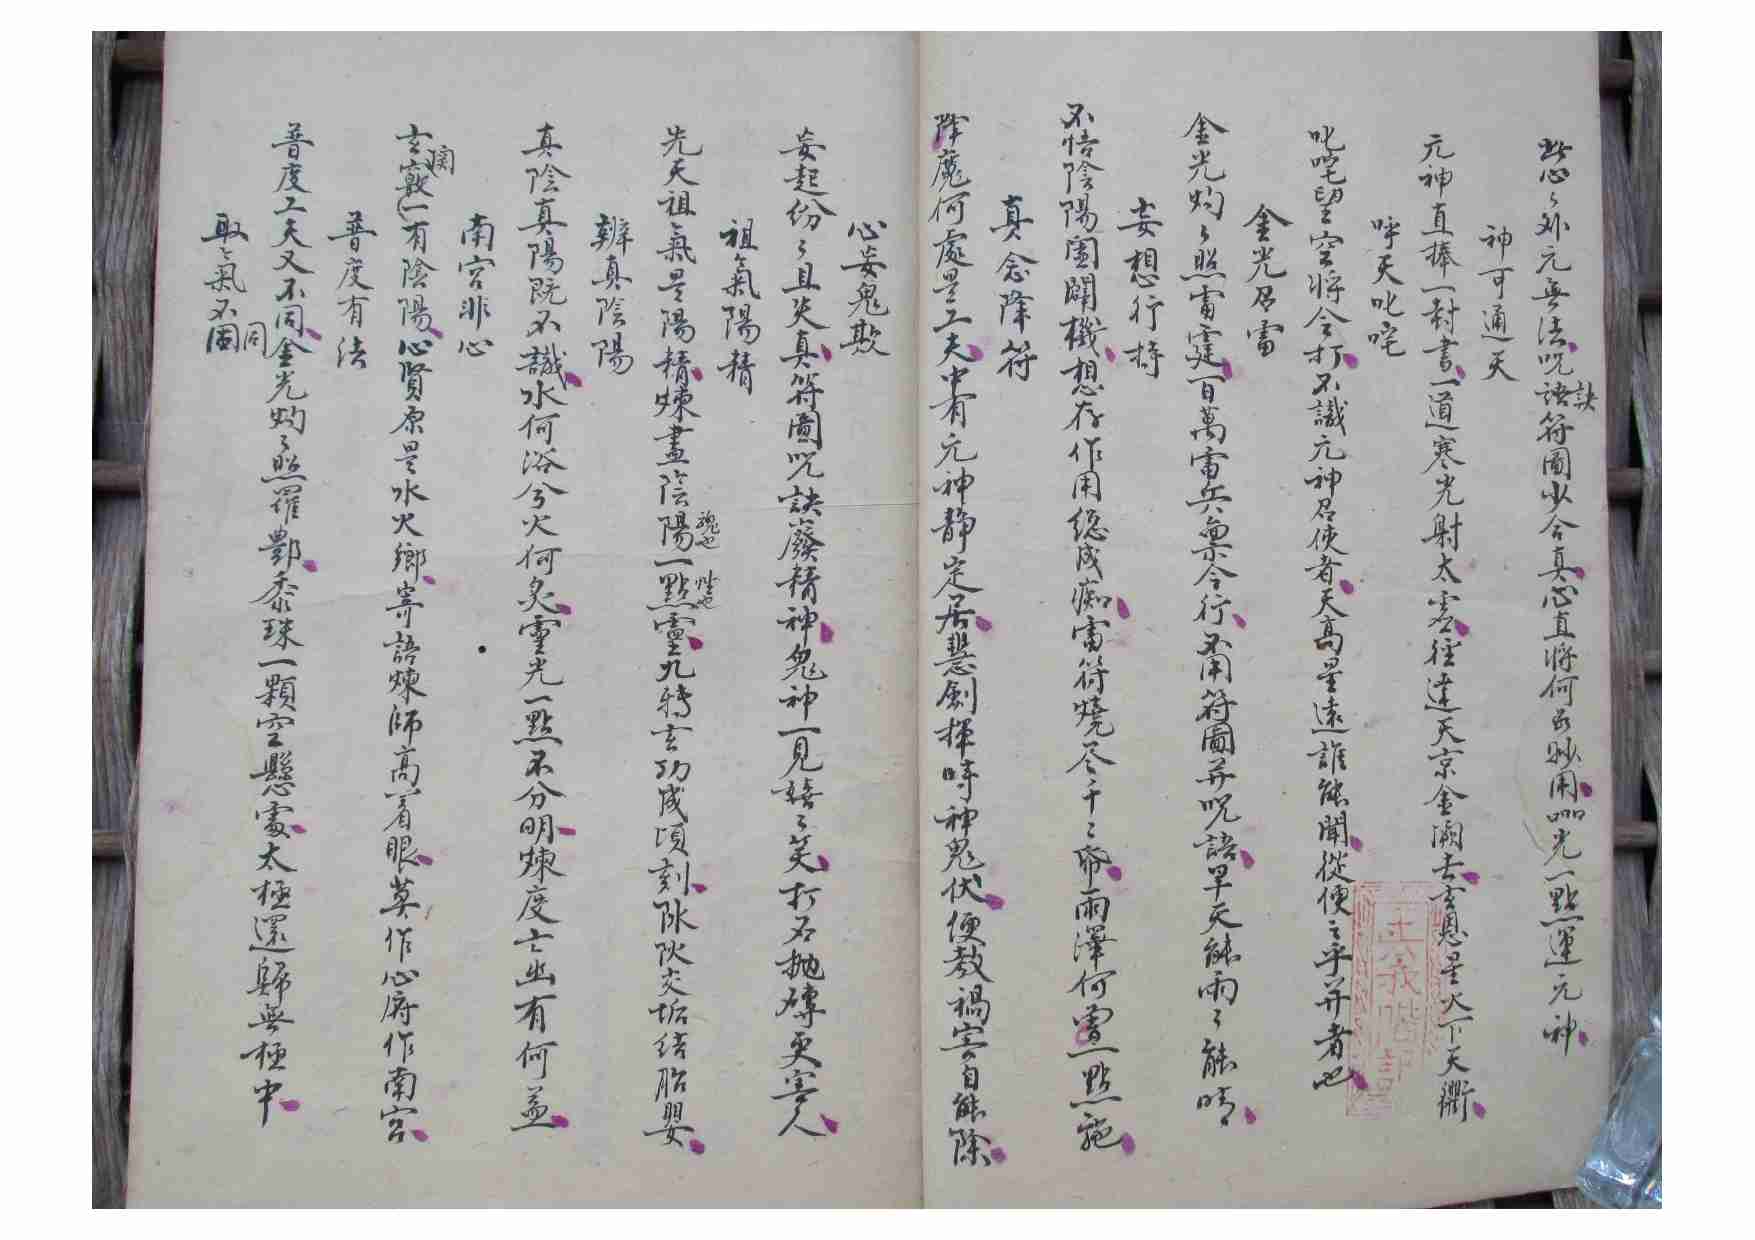 此心心外元無法呪語訣符圖少合真心直將何爲妙用㗊光一點運元神
神可通天
元神直捧一封書一道寒光射太虛徑達天京金闕去玄恩星火下天衢
呼天叱咤
叱咤望空將令打不識元神召使者天高星遠誰能聞從便之乎并者也
金光召雷
金光灼々照雷霆百萬雷兵稟令行不用符圖并呪語旱天能雨々能晴
妄想行持
不悟陰陽闔闢機想存作用總成痴雷符燒尽千々帋雨澤何曾一點施
真念降符
降魔何處是工夫中有元神靜定居慧劍揮時神鬼伏便教禍害自能除
心妄鬼欺
妄起紛々且失真符圖呪訣廢精神鬼神一見嘻々笑打石拋磚更害人
祖氣陽精
先天祖氣是陽精煉盡陰陽一點靈九轉玄功成頃刻
魂也
性也
辨真陰陽
真陰真陽既不識水何浴兮火何炙靈光一點不分明煉度亡幽有何益
南宮非心
玄竅一有陰陽心腎原是水火鄉寄語煉師高着眼莫作心府作南宮
関
普度有法
普度工夫又不同金光灼々照羅酆黍珠一顆空懸處太極還歸無極中
取氣不圖
同